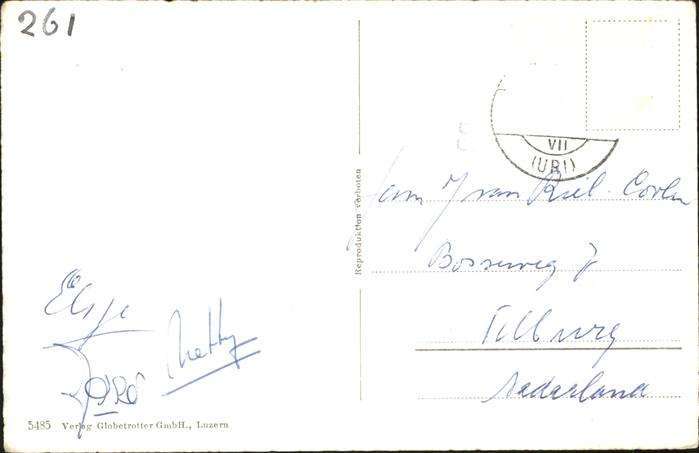 261
VII
(URI)
Reproduktion verboten
Fam J van Riel.
Bosseweg 7
Tilburg
Nederland
Elsje
Netty
5485 Verlag Globetrotter GmbH., Luzern